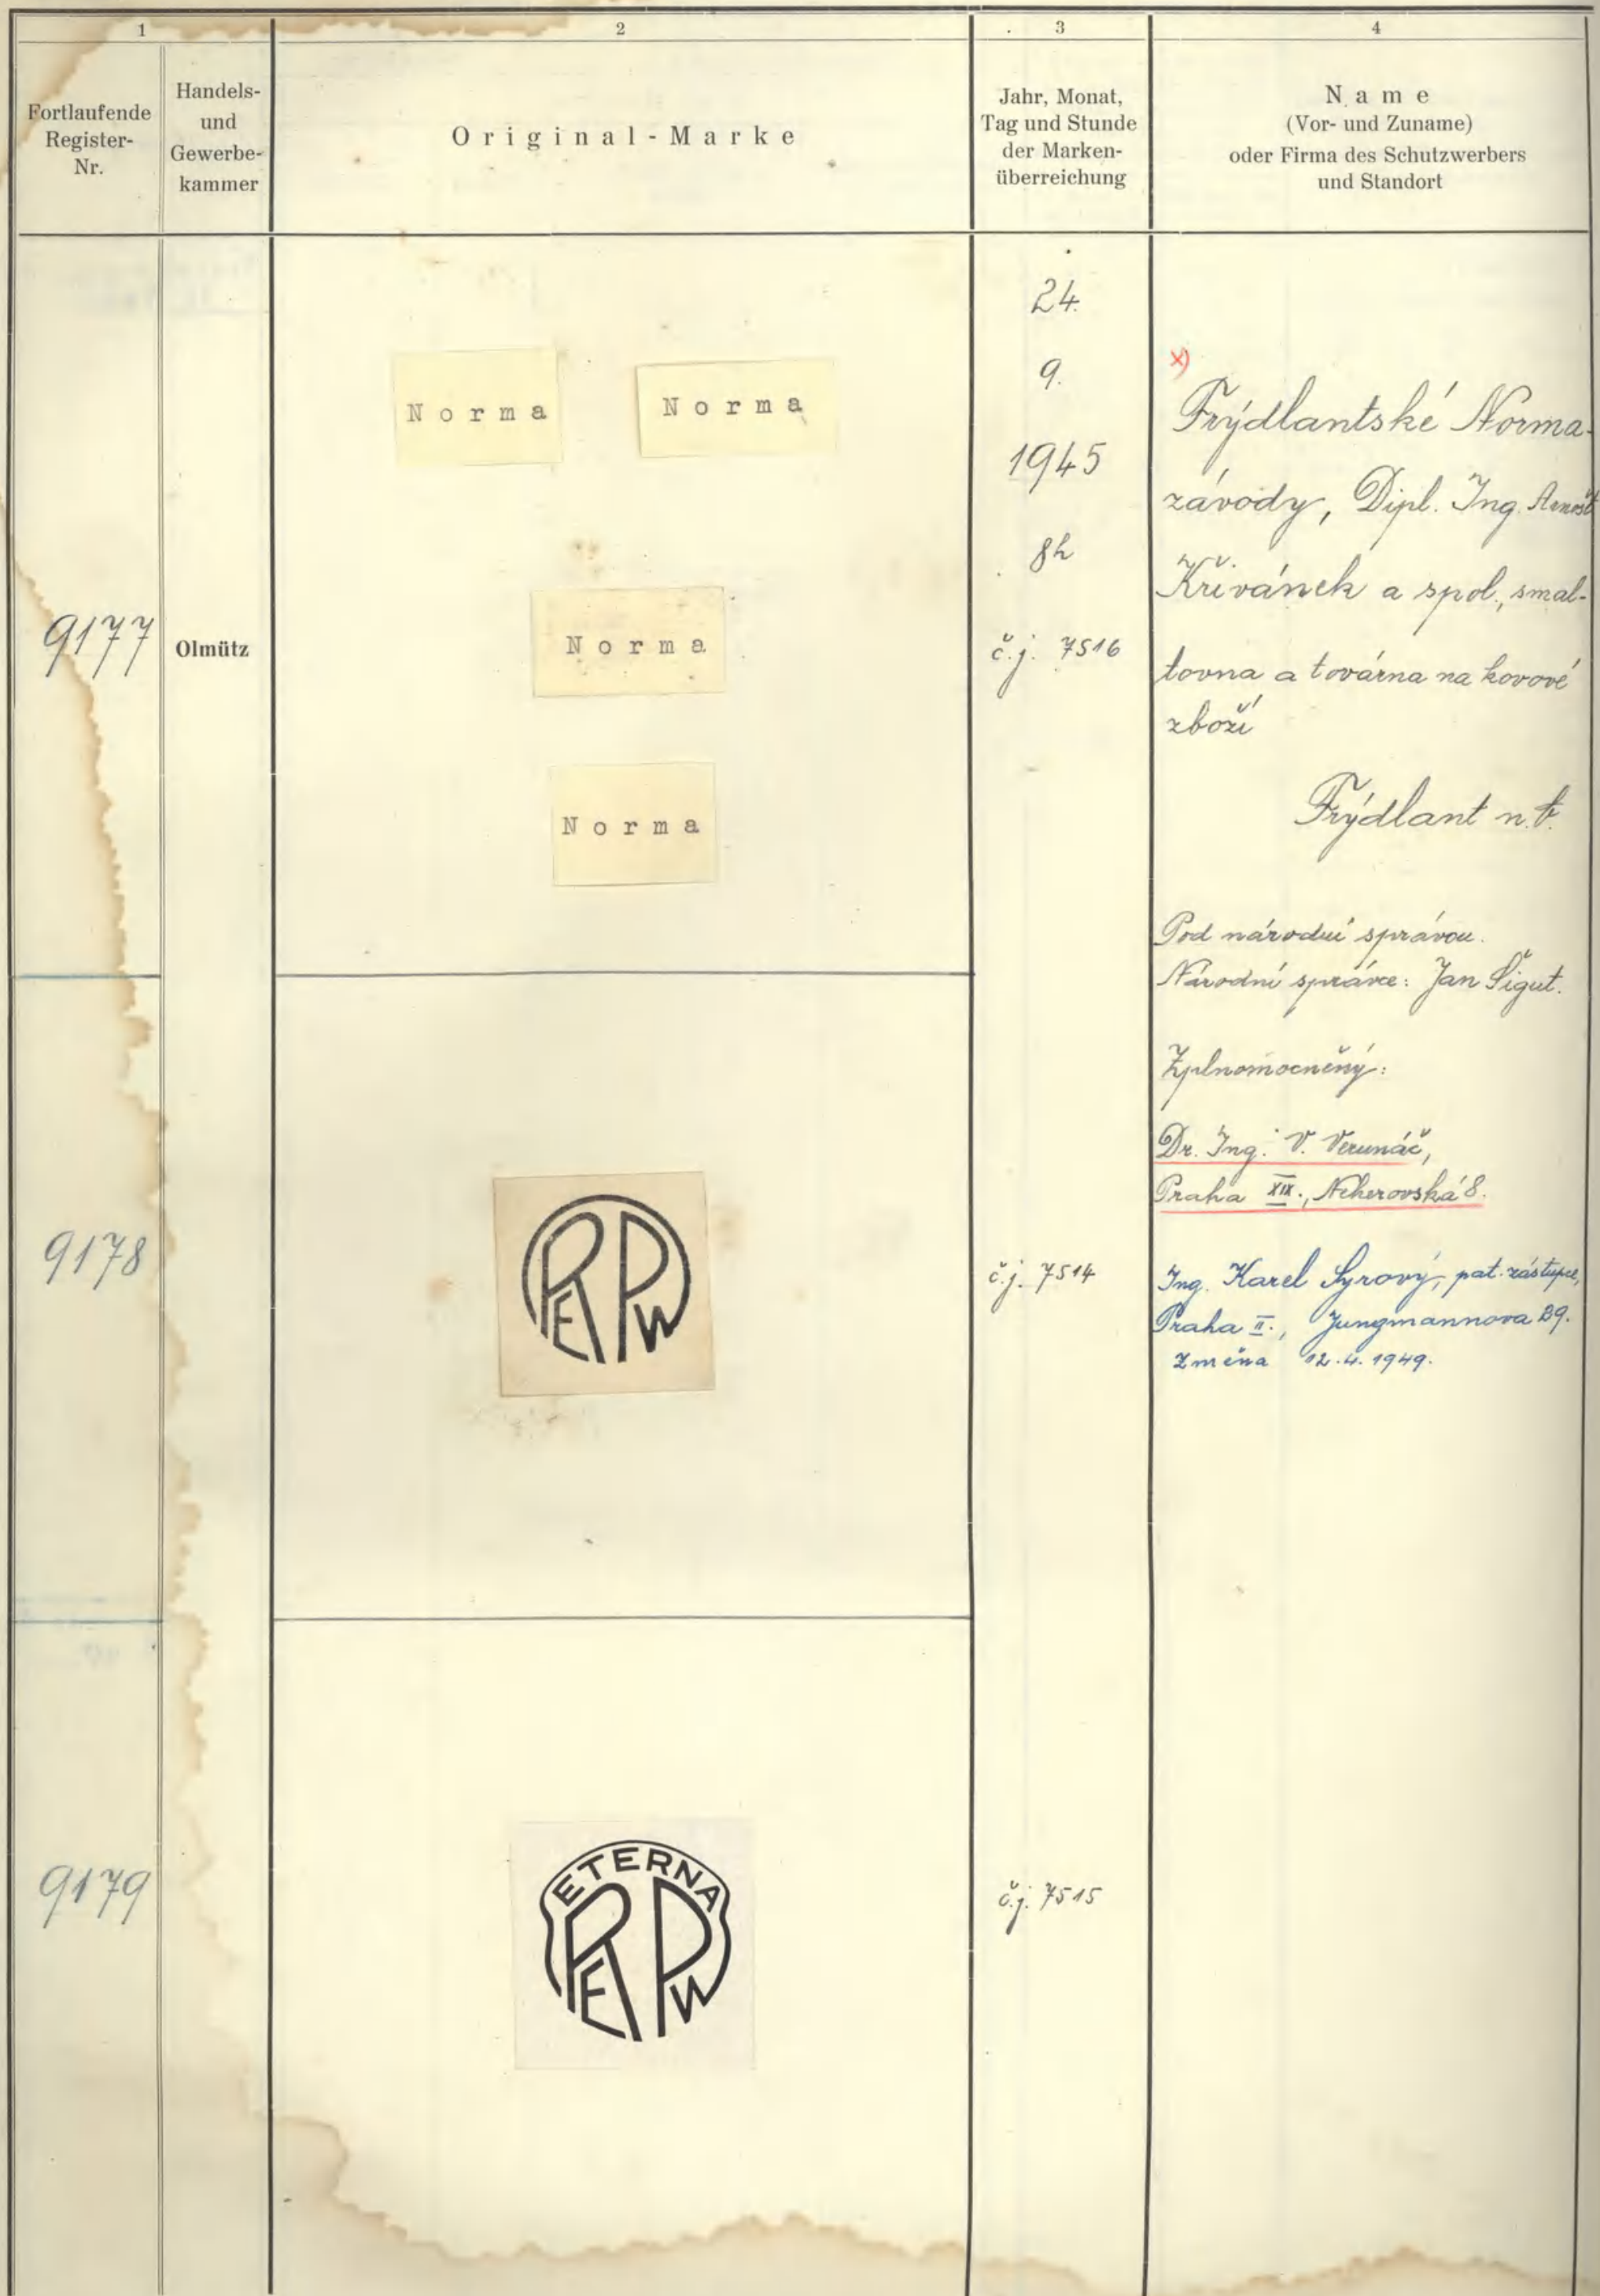 1
2
3
4
Fortlaufende
Register-
Nr.
Handels-
und
Gewerbe-
kammer
Original-Marke
Jahr, Monat,
Tag und Stunde
der Marken-
überreichung
Name
(Vor- und Zuname)
oder Firma des Schutzwerbers
und Standort
9177
Olmütz
Norma
Norma
Norma
Norma
24.
9.
1945
8h
č.j. 7516
x)
Frýdlantské Norma-
závody, Dipl. Ing. Arnošt
Křivánek a spol., smal-
tovna a továrna na kovové
zboží
Frýdlant
Pod národní správou.
Národní správce: Jan Šigut.
Zplnomocněný:
Dr. Ing. V. Verunáč,
Praha XIX., Neherovská 8.
Ing. Karel Syrový, pat. zástupce,
Praha II., Jungmannova
Změna 12.4.1949.
9178
REPW
č.j. 7514
9179
ETERNA
REPW
č.j. 7515